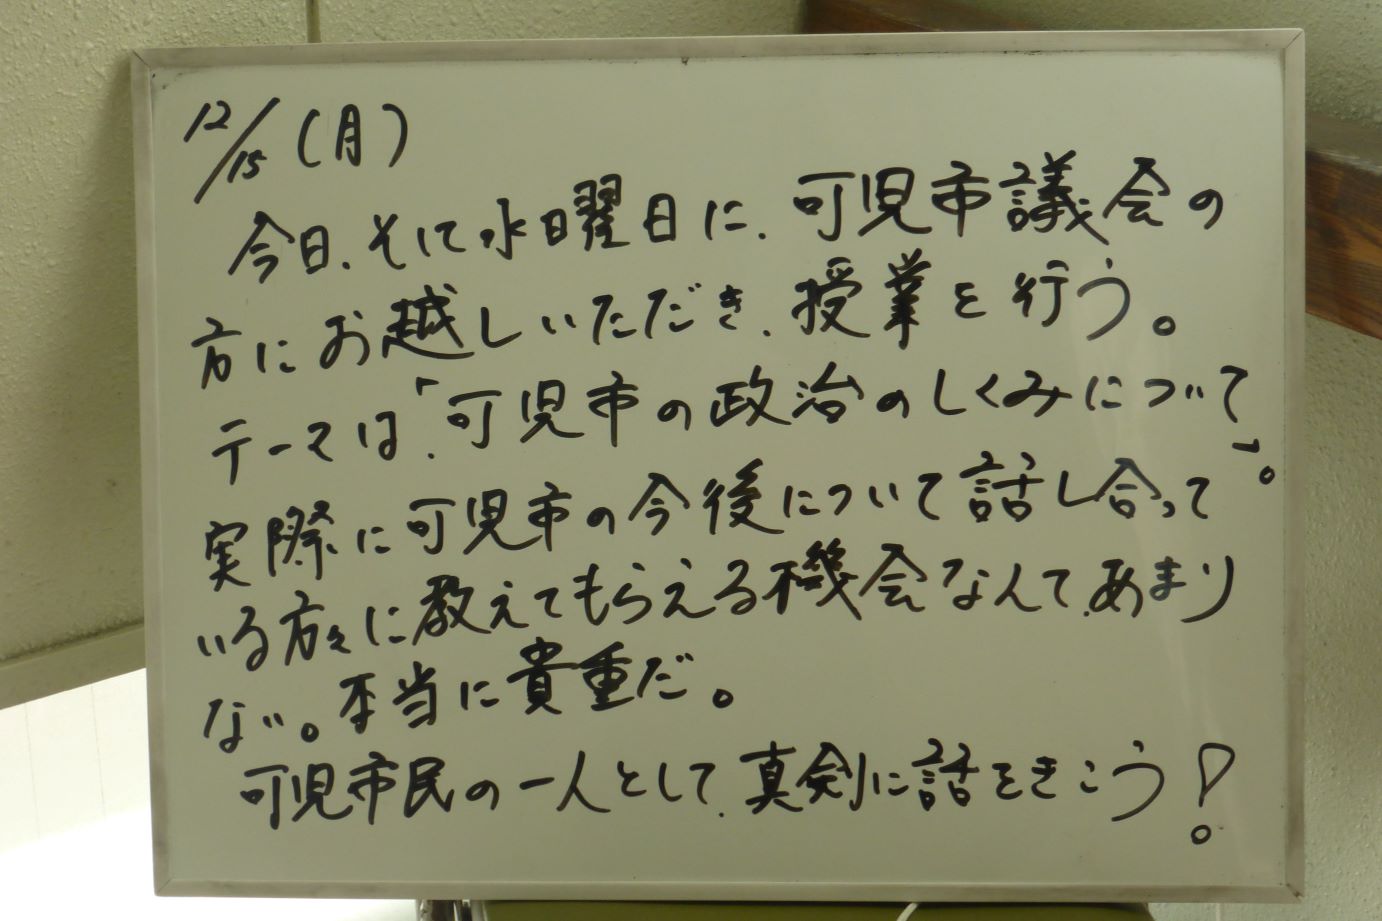 12/15(月)
今日、そして水曜日に、可児市議会の
方にお越しいただき、授業を行う。
テーマは、「可児市の政治のしくみについて」。
実際に可児市の今後について話し合って
いる方々に教えてもらえる機会なんて、あまり
ない。本当に貴重だ。
可児市民の一人として、真剣に話をきこう!